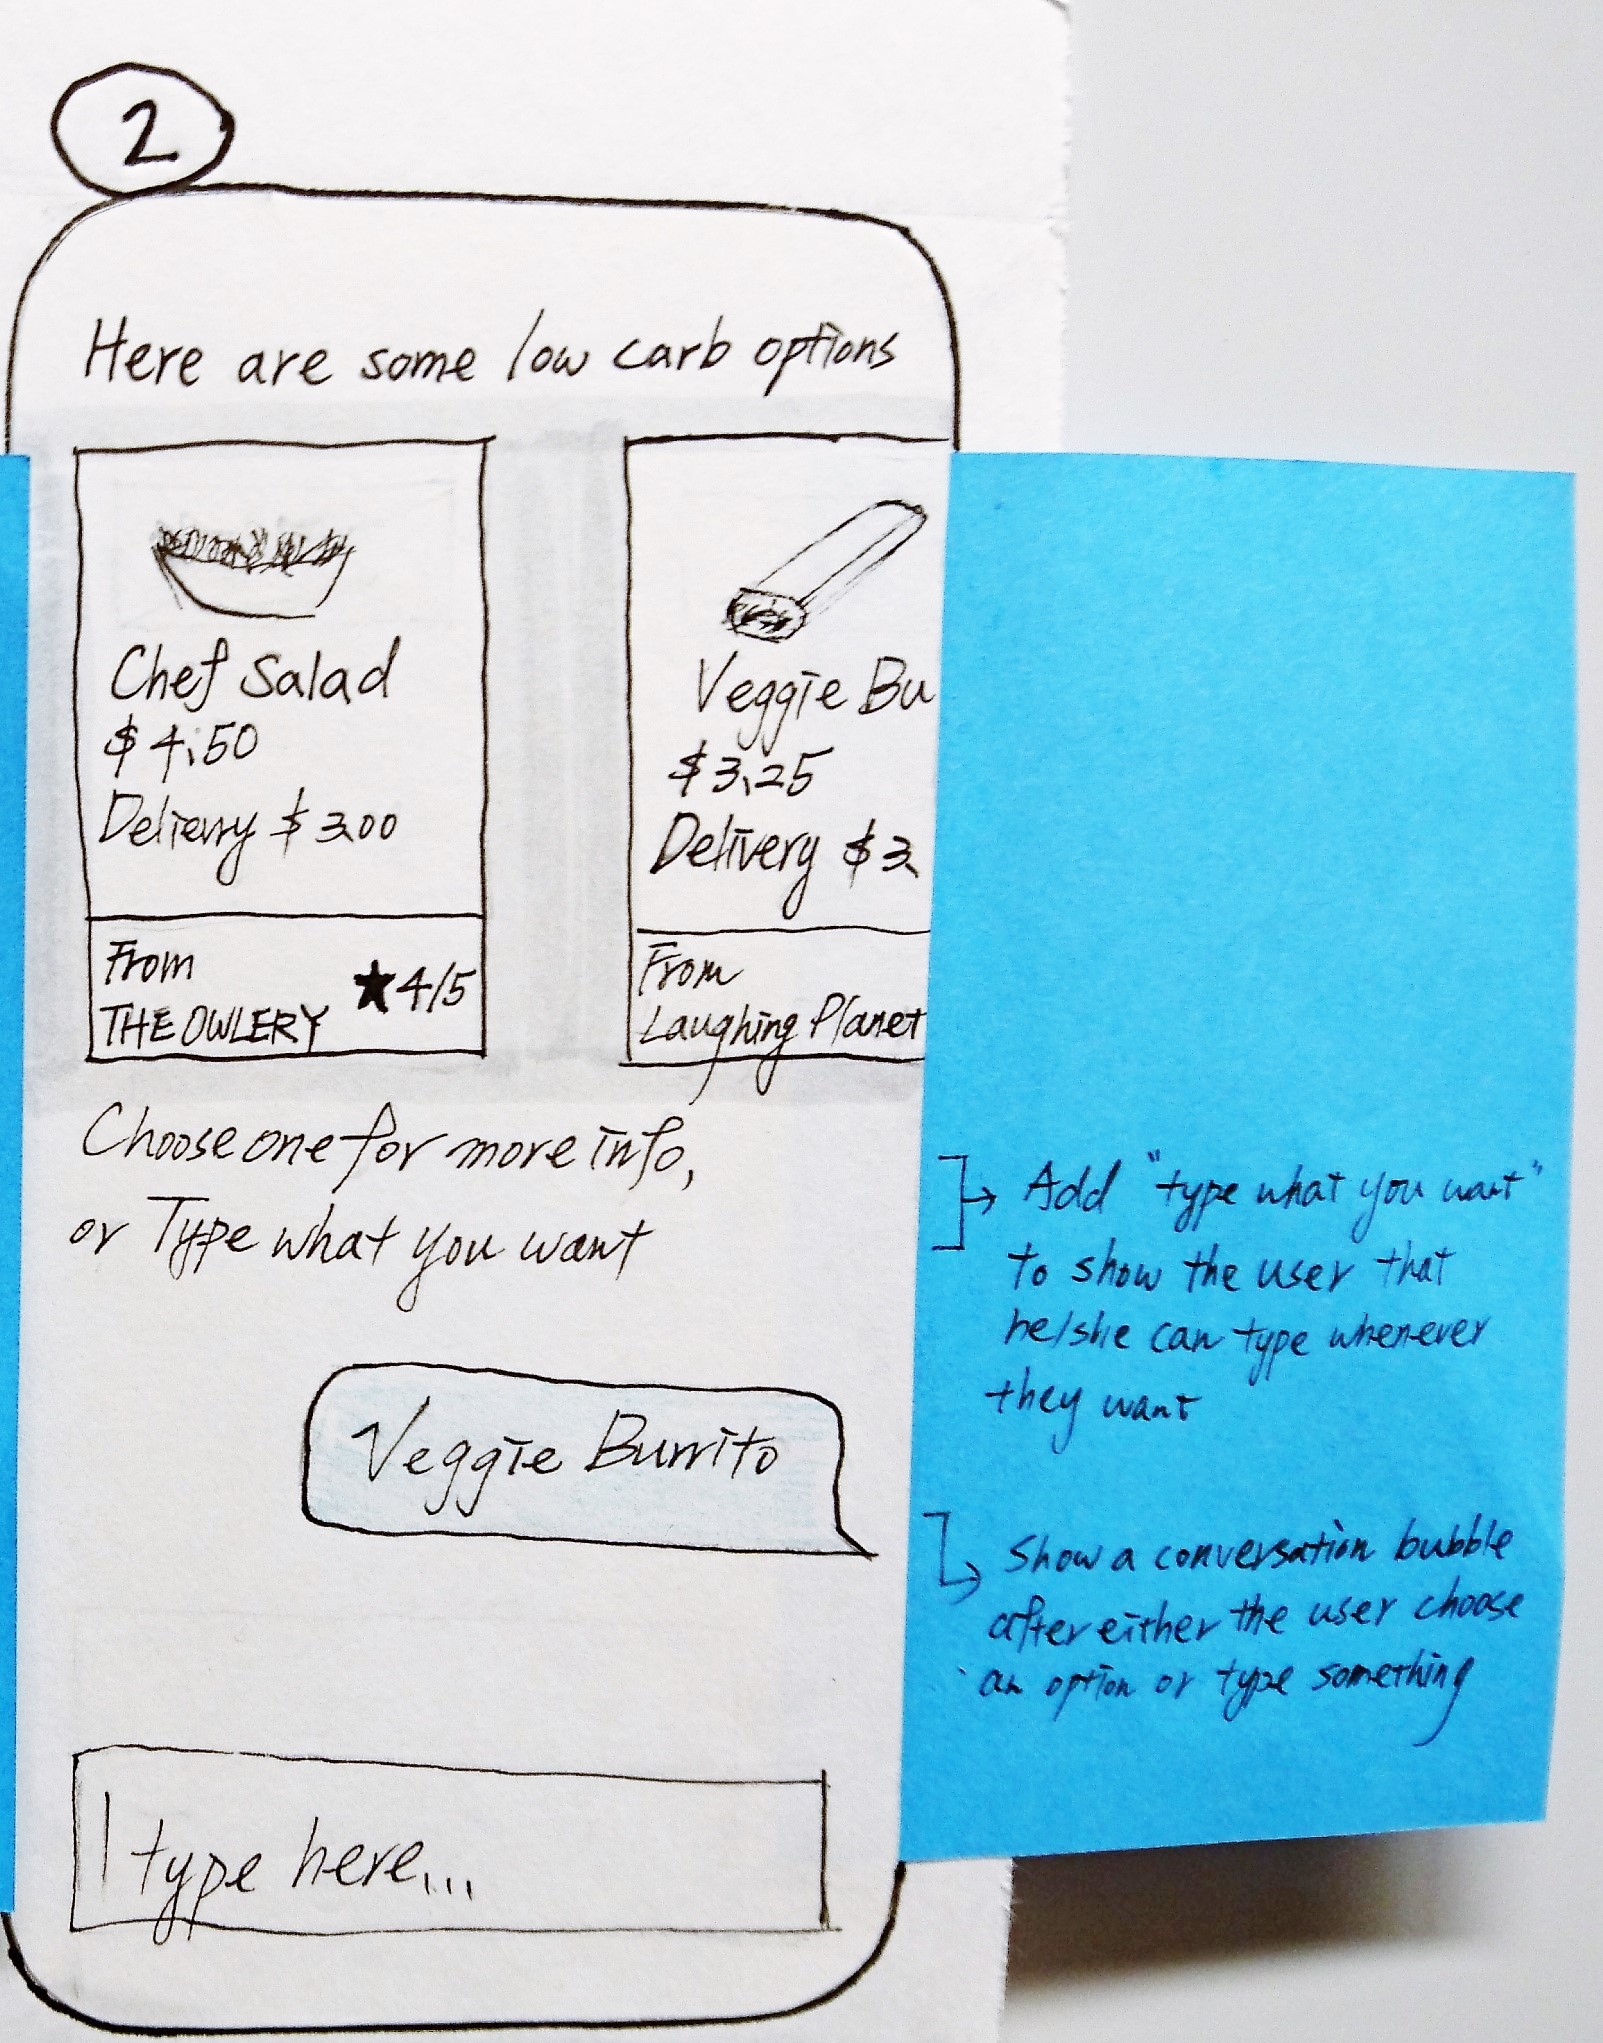 2
Here are some low carb options
Chef Salad
$ 4.50
Delievry $ 3.00
From
THE OWLERY
★4/5
Veggie Bu
$ 3.25
Delivery $ 3.
From
Laughing Planet
Choose one for more info,
or Type what you want
Veggie Burrito
type here...
Add "type what you want"
to show the user that
he/she can type whenever
they want
Show a conversation bubble
after either the user choose
an option or type something